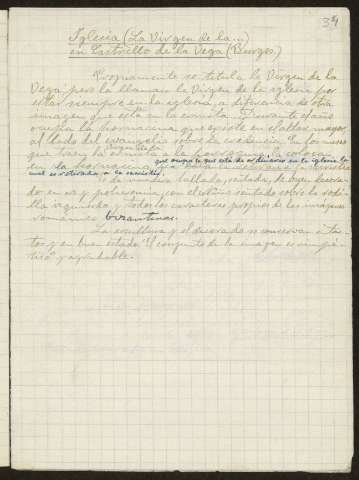 34
Iglesia (La Virgen de la ...)
en Castrillo de la Vega (Burgos.)
Propiamente se titula la Virgen de la
Vega pero la llaman la Virgen de la iglesia por
estar siempre en la iglesia, a diferencia de otra
imagen que está en la ermita. Durante el año
ocupa la hornacina que existe en el altar mayor,
al lado del evangelio sobre la credencia. En los meses
que traen la
que ocupa la que está de ordinario en la iglesia la
cual es retirada a la sacristía.
Es de madera tallada, sentada, de buen decora-
do en oro y policromía, con el niño sentado sobre la rodi-
lla izquierda y todos los caracteres propios de las imágenes
románico bizantinas.
La escultura y el decorado se conservan intac-
tos y en buen estado. El conjunto de la imagen es simpá-
tico y agradable.